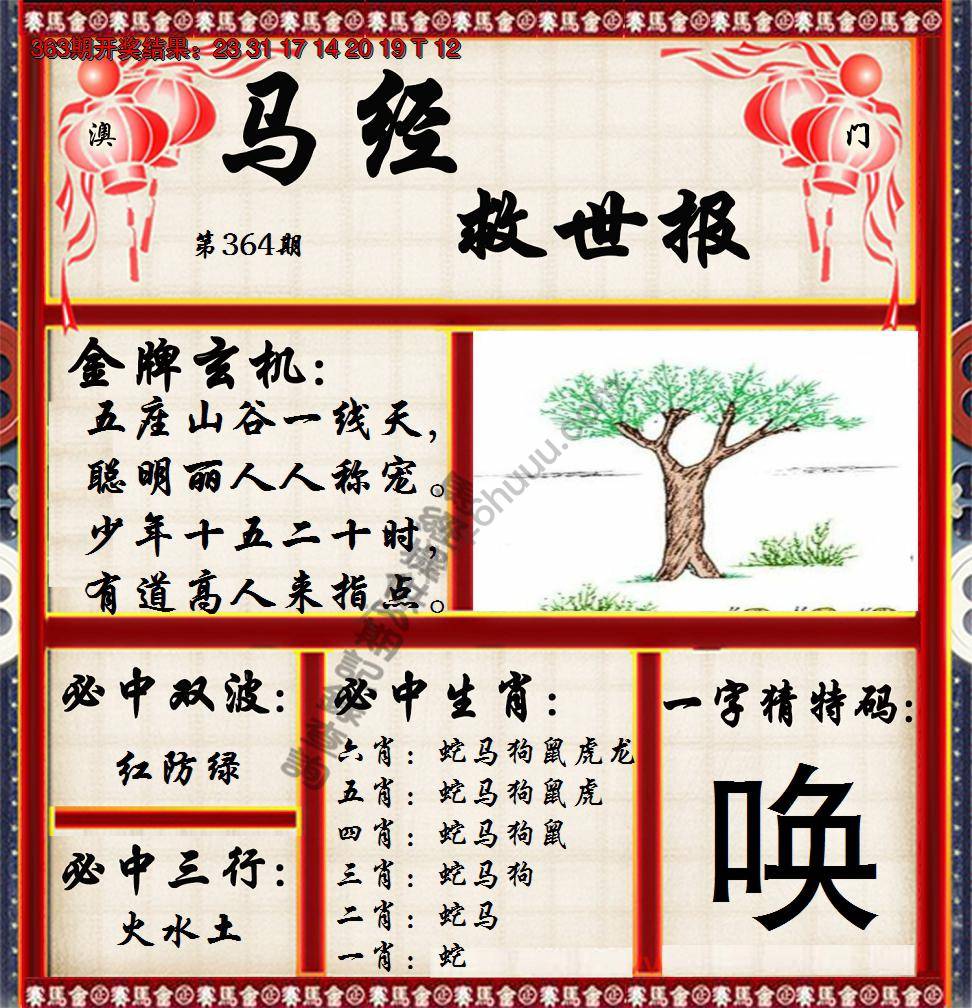 363期开奖结果：23 31 17 14 20 19 T 12
澳
门
马经
救世报
第364期
金牌玄机：
五座山谷一线天，
聪明丽人人称宠。
少年十五二十时，
有道高人来指点。
必中双波：
红防绿
必中三行：
火水土
必中生肖：
六肖：蛇马狗鼠虎龙
五肖：蛇马狗鼠虎
四肖：蛇马狗鼠
三肖：蛇马狗
二肖：蛇马
一肖：蛇
一字猜特码：
唤